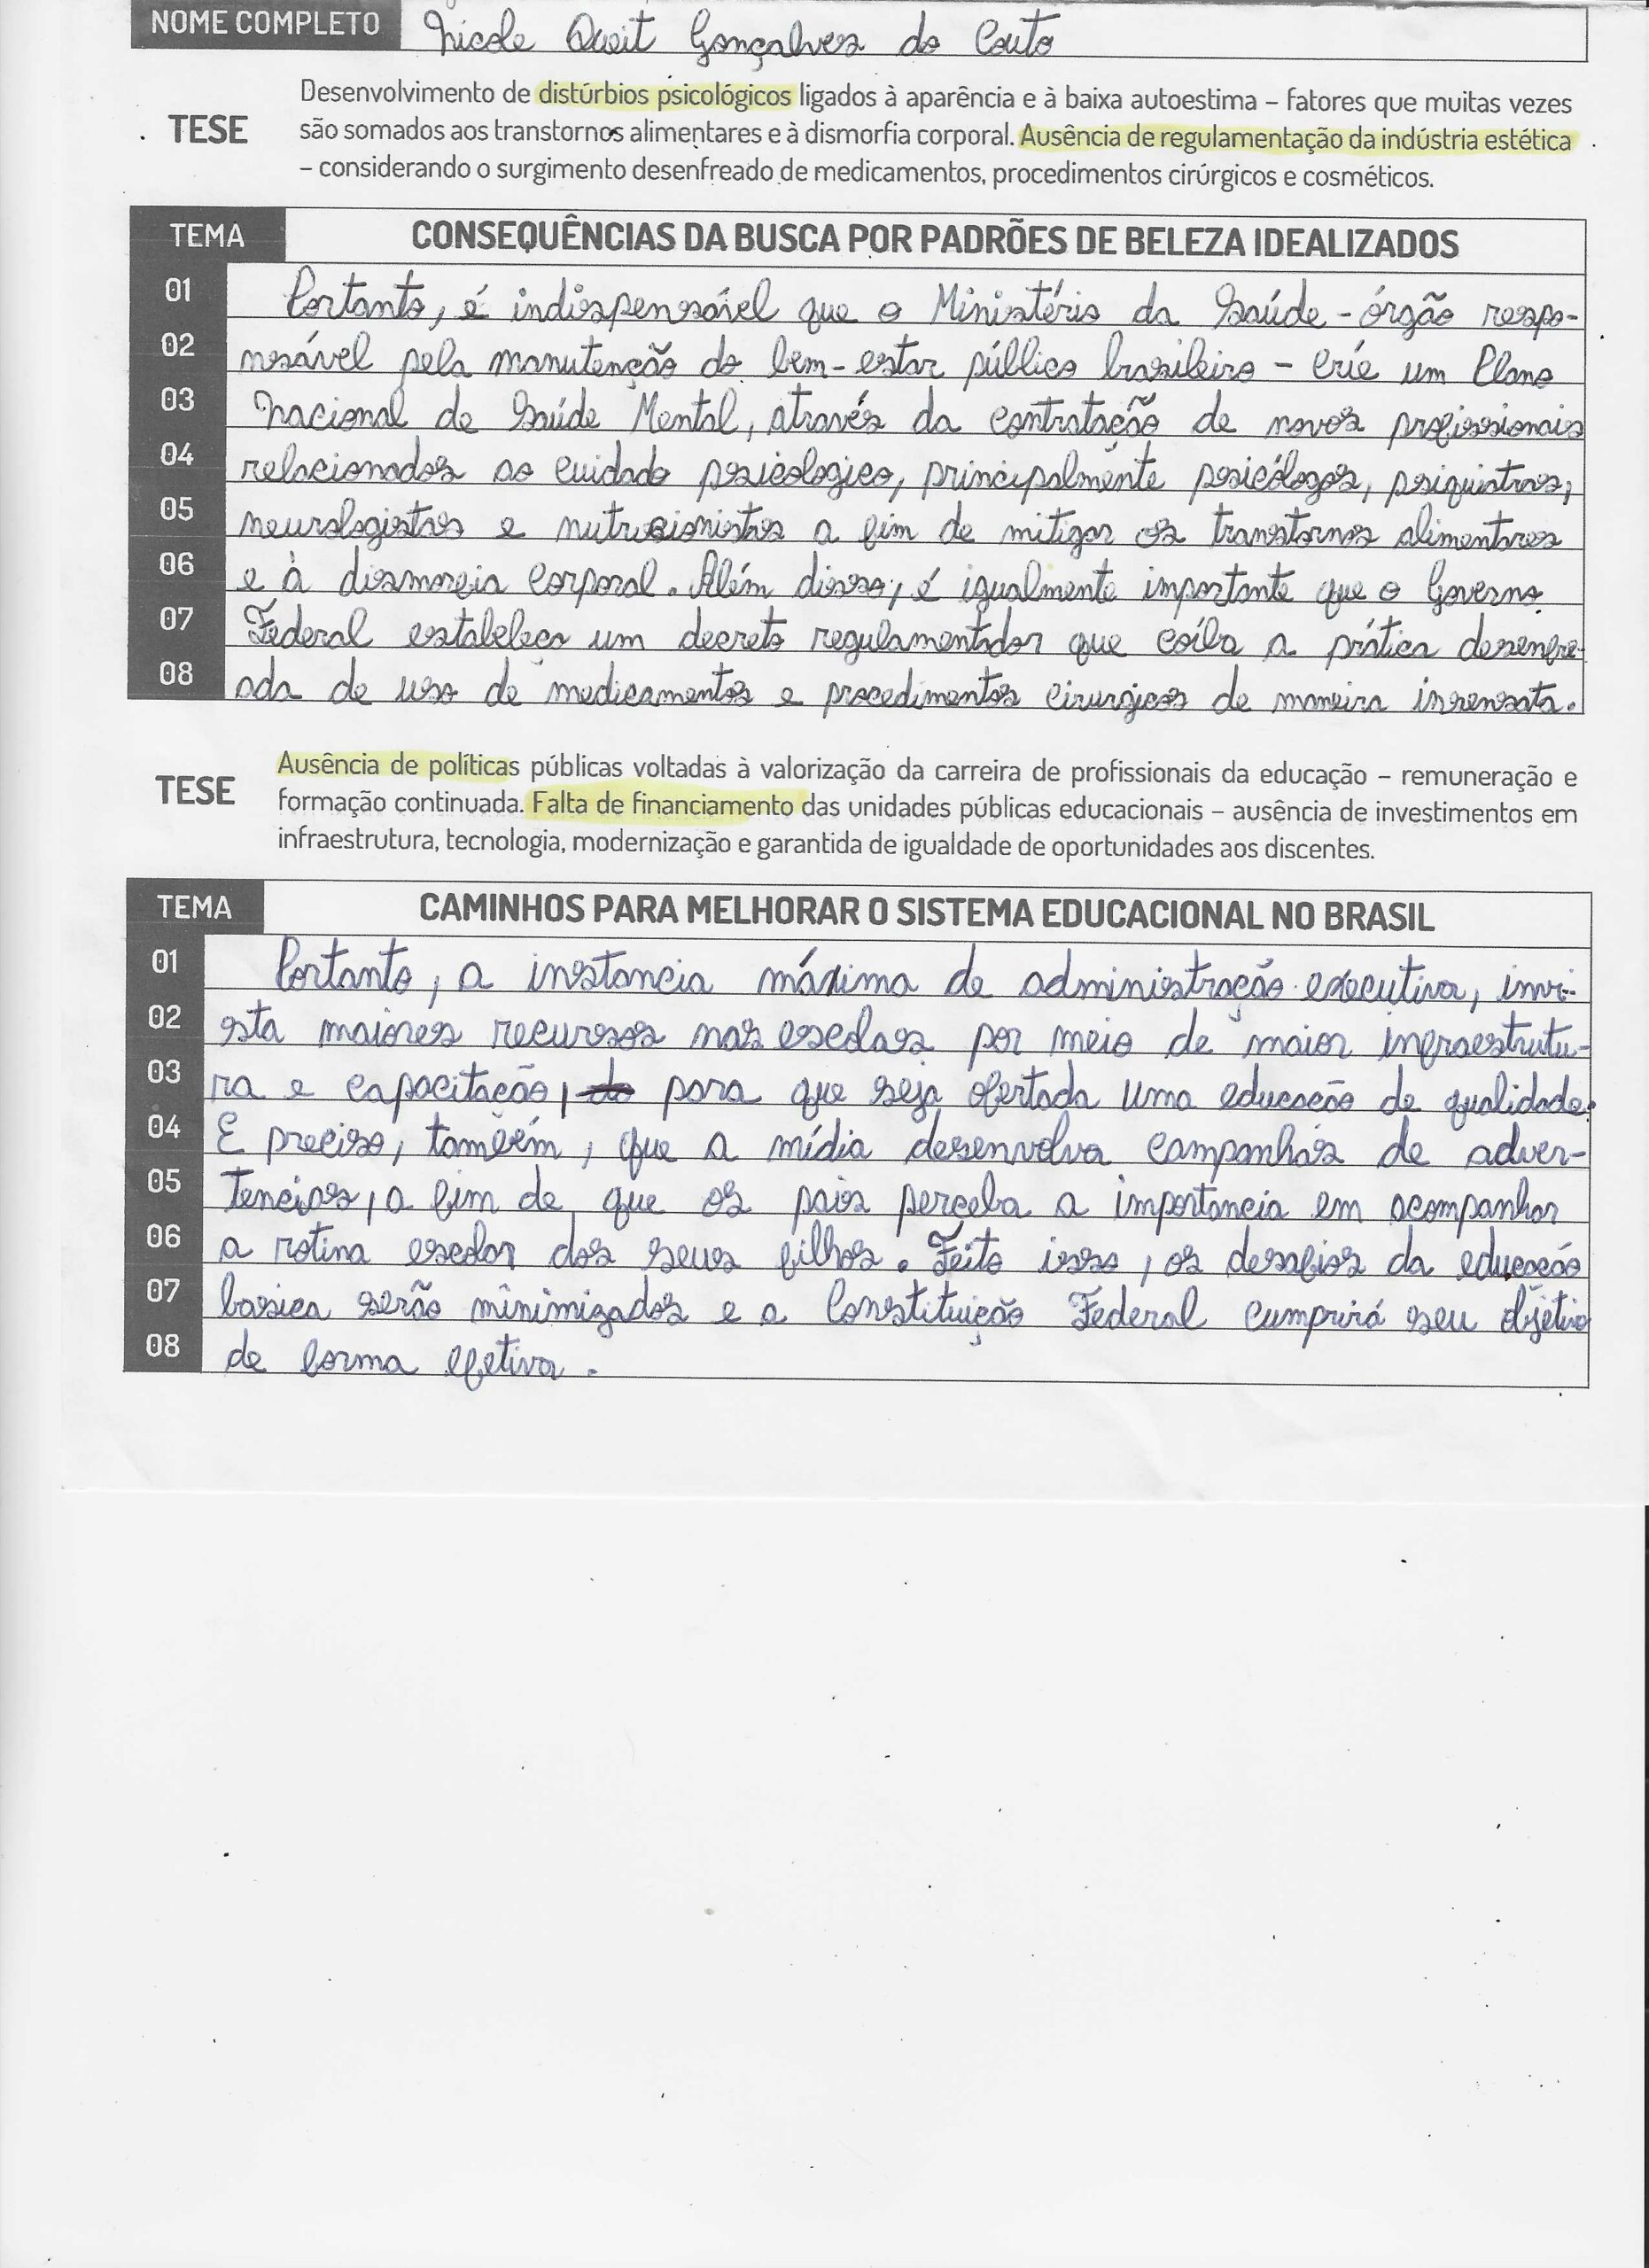 NOME COMPLETO Nicole Queit Gonçalves do Couto
Desenvolvimento de distúrbios psicológicos ligados à aparência e à baixa autoestima – fatores que muitas vezes
TESE são somados aos transtornos alimentares e à dismorfia corporal. Ausência de regulamentação da indústria estética
– considerando o surgimento desenfreado de medicamentos, procedimentos cirúrgicos e cosméticos.
TEMA CONSEQUÊNCIAS DA BUSCA POR PADRÕES DE BELEZA IDEALIZADOS
01 Portanto, é indispensável que o Ministério da Saúde - órgão respo-
02 nsável pela manutenção do bem-estar público brasileiro - crie um Plano
03 Nacional de Saúde Mental, através da contratação de novos profissionais
04 relacionados ao cuidado psicologico, principalmente psicólogos, psiquiatras,
05 neurologistas e nutricionistas a fim de mitigar os transtornos alimentares
06 e à dismorfia corporal. Além disso, é igualmente importante que o Governo
07 Federal estabeleça um decreto regulamentador que coíba a prática desenfre-
08 ada de uso de medicamentos e procedimentos cirurgicos de maneira insensata.
Ausência de políticas públicas voltadas à valorização da carreira de profissionais da educação – remuneração e
TESE formação continuada. Falta de financiamento das unidades públicas educacionais – ausência de investimentos em
infraestrutura, tecnologia, modernização e garantida de igualdade de oportunidades aos discentes.
TEMA CAMINHOS PARA MELHORAR O SISTEMA EDUCACIONAL NO BRASIL
01 Portanto, a instancia máxima de administração executiva, invi-
02 sta maiores recursos nas escolas por meio de maior infraestrutu-
03 ra e capacitação, para que seja ofertada uma educação de qualidade.
04 É preciso, também, que a mídia desenvolva campanhas de adver-
05 tencias, a fim de que os pais perceba a importancia em acompanhar
06 a rotina escolar dos seus filhos. Feito isso, os desafios da educação
07 basica serão minimizados e a Constituição Federal cumprirá seu objetivo
08 de forma efetiva.